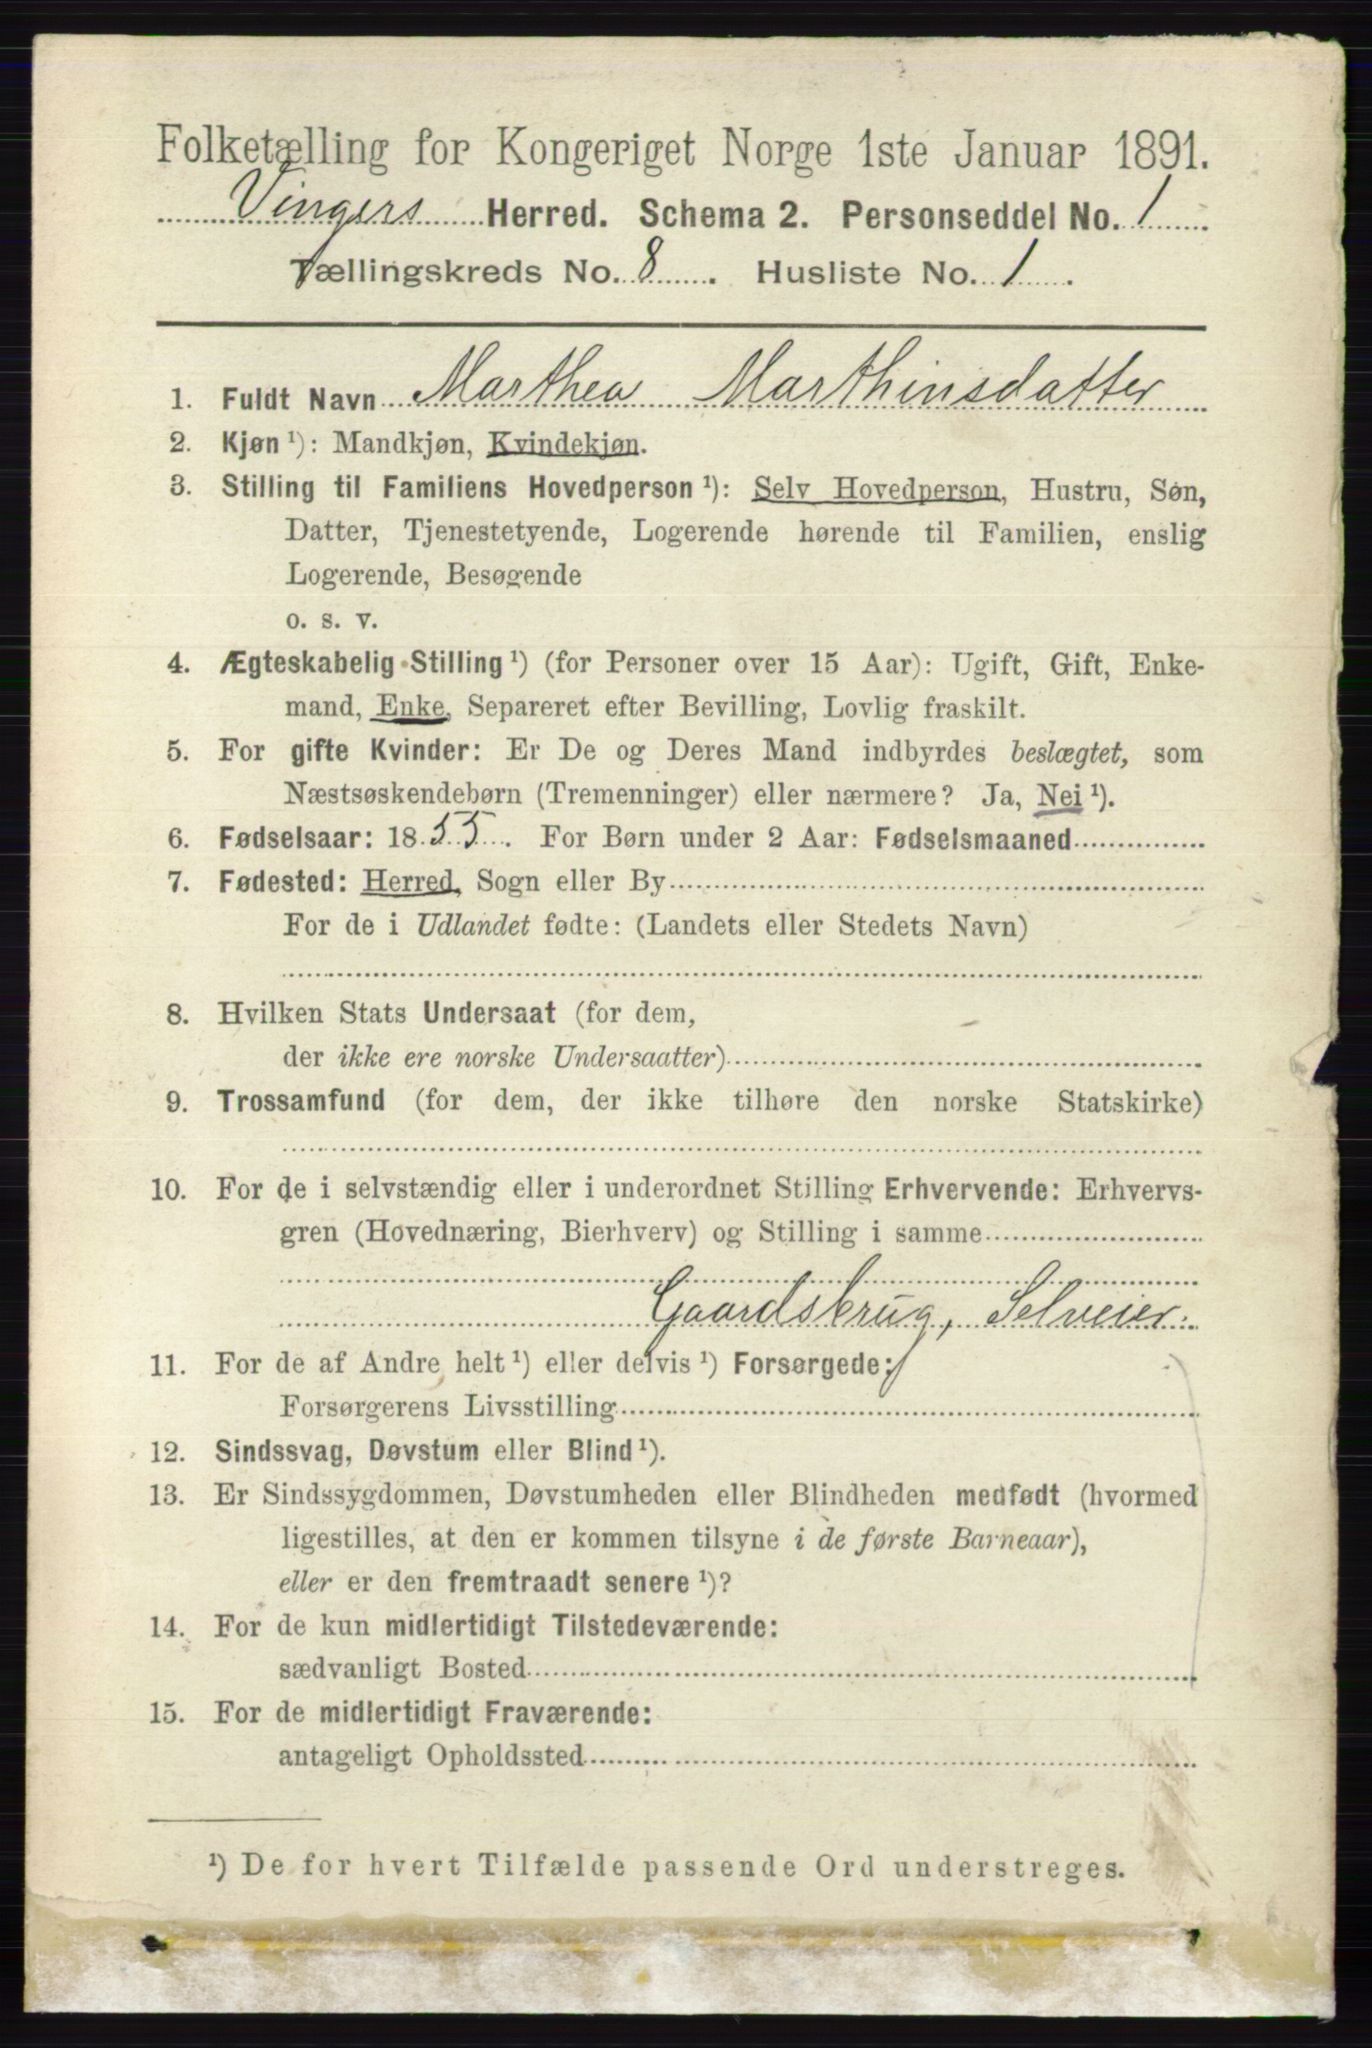 Folketælling for Kongeriget Norge 1ste Januar 1891.
Vingers Herred. Schema 2. Personseddel No. 1
Tællingskreds No. 8. Husliste No. 1.
1. Fuldt Navn Marthea Marthinsdatter
2. Kjøn ¹): Mandkjøn, Kvindekjøn.
3. Stilling til Familiens Hovedperson ¹): Selv Hovedperson, Hustru, Søn,
Datter, Tjenestetyende, Logerende hørende til Familien, enslig
Logerende, Besøgende
o. s. v.
4. Ægteskabelig Stilling ¹) (for Personer over 15 Aar): Ugift, Gift, Enke-
mand, Enke, Separeret efter Bevilling, Lovlig fraskilt.
5. For gifte Kvinder: Er De og Deres Mand indbyrdes beslægtet, som
Næstsøskendebørn (Tremenninger) eller nærmere? Ja, Nei ¹).
6. Fødselsaar: 1855. For Børn under 2 Aar: Fødselsmaaned
7. Fødested: Herred, Sogn eller By
For de i Udlandet fødte: (Landets eller Stedets Navn)
8. Hvilken Stats Undersaat (for dem,
der ikke ere norske Undersaatter)
9. Trossamfund (for dem, der ikke tilhøre den norske Statskirke)
10. For de i selvstændig eller i underordnet Stilling Erhvervende: Erhvervs-
gren (Hovednæring, Bierhverv) og Stilling i samme
Gaardsbrug, Selveier.
11. For de af Andre helt ¹) eller delvis ¹) Forsørgede:
Forsørgerens Livsstilling
12. Sindssvag, Døvstum eller Blind ¹).
13. Er Sindssygdommen, Døvstumheden eller Blindheden medfødt (hvormed
ligestilles, at den er kommen tilsyne i de første Barneaar),
eller er den fremtraadt senere ¹)?
14. For de kun midlertidigt Tilstedeværende:
sædvanligt Bosted
15. For de midlertidigt Fraværende:
antageligt Opholdssted
¹) De for hvert Tilfælde passende Ord understreges.